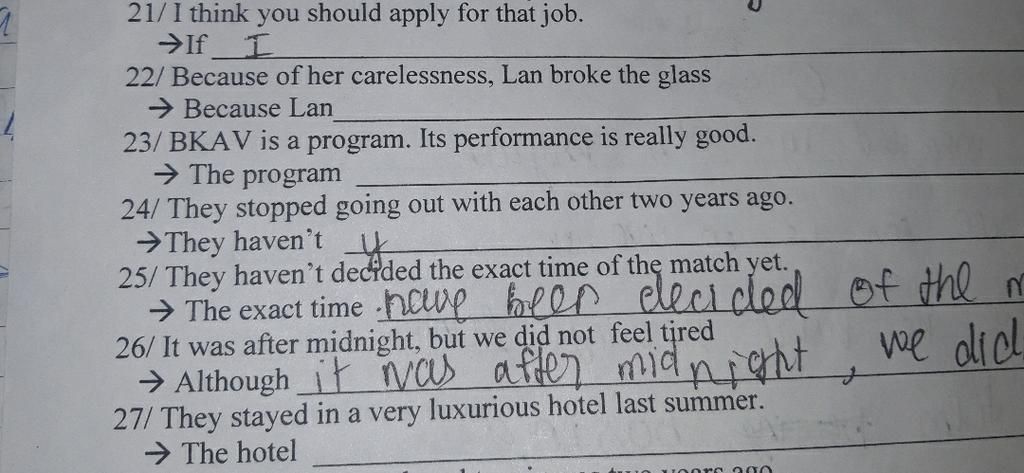 21/ I think you should apply for that job.
→If I
22/ Because of her carelessness, Lan broke the glass
→ Because Lan
23/ BKAV is a program. Its performance is really good.
→ The program
24/ They stopped going out with each other two years ago.
→They haven't y
25/ They haven't decided the exact time of the match yet.
→ The exact time have been decided of the m
26/ It was after midnight, but we did not feel tired
→ Although it was after midnight, we did
27/ They stayed in a very luxurious hotel last summer.
→ The hotel
years ago